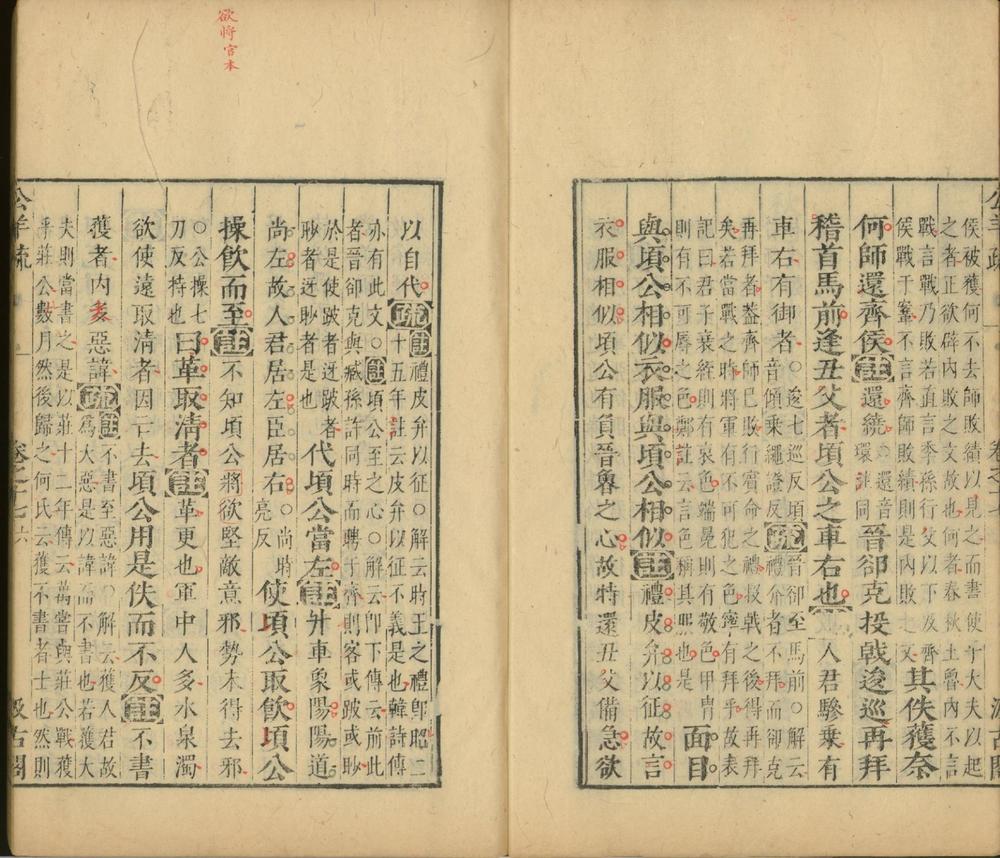 侯被獲何不去師敗績以見之而書使乎大夫以起
之者正欲辟內敗之文故也何者春秋王魯內不言
戰言戰乃敗若直言季孫行父以下及齊
侯戰于鞌不言齊師敗績則是內敗之文
其佚獲奈
何師還齊侯註還繞○還音
環註同
晉郤克投戟逡巡再拜
稽首馬前逢丑父者頃公之車右也註人君驂乘有
車右有御者○逡七巡反頃
音傾乘繩證反
疏晉郤至馬前○解云
禮介者不拜而郤克
再拜者蓋齊師已敗行賓命之禮投戟之後得再拜
矣若當戰之時將軍有不可犯之色寧有拜乎故表
記曰君子衰絰則有哀色端冕則有敬色甲冑
則有不可辱之色鄭註云言色稱其服也是
面目
與頃公相似衣服與頃公相似註禮皮弁以征故言
衣服相似頃公有負晉魯之心故特還丑父備急欲
公羊疏
卷之十七
汲古閣
欲將官本
以自代疏註禮皮弁以征○解云時王之禮卽昭二
十五年註云皮弁以征不義是也韓詩傳
亦有此文○註頃公至之心○解云卽下傳云前此
者晉郤克與臧孫許同時而聘于齊則客或跛或眇
於是使跛者迓跛者
眇者迓眇者是也
代頃公當左註升車象陽陽道
尚左故人君居左臣居右○尚時
亮反
使頃公取飲頃公
操飲而至註不知頃公將欲堅敵意邪勢未得去邪
○公操七
刀反特也
曰革取清者註革更也軍中人多水泉濁
欲使遠取清者因亡去頃公用是佚而不反註不書
獲者內多惡諱疏註不書至惡諱○解云獲人君故
為大惡是以諱而不書也若獲大
夫則當書之是以莊十二年傳云萬嘗與莊公戰獲
乎莊公數月然後歸之何氏云獲不書者士也然則
公羊疏
卷之十七
六
汲古閣